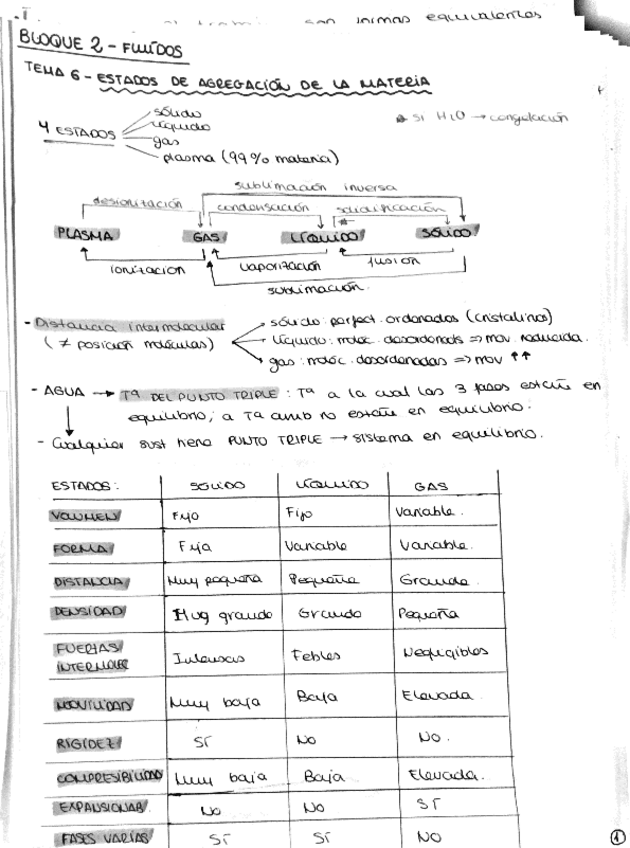 son mismas equivalentes
BLOQUE 2 - FLUÍDOS
TEMA 6 - ESTADOS DE AGREGACIÓN DE LA MATERIA
4 ESTADOS
sólido
líquido
gas
plasma (99% materia)
* si H2O → congelación
sublimación inversa
desionización condensación solidificación
*
PLASMA GAS LÍQUIDO SÓLIDO
ionización vaporización fusión
sublimación.
- Distancia intermolecular
(≠ posición moléculas)
sólido: perfect. ordenados (cristalinos)
líquido: moléc. desordenads => mov. reducida.
gas: moléc. desordenadas => mov ↑↑
- AGUA → Tª DEL PUNTO TRIPLE: Tª a la cual las 3 fases están en
equilibrio; a Tª amb no están en equilibrio.
- Cualquier sust tiene PUNTO TRIPLE → sistema en equilibrio.
ESTADOS: SÓLIDO LÍQUIDO GAS
VOLUMEN Fijo Fijo Variable.
FORMA Fija Variable Variable.
DISTANCIA Muy pequeña Pequeña Grande.
DENSIDAD Muy grande Grande Pequeña
FUERZAS INTERMOLEC Intensas Febles Negligibles
MOVILIDAD Muy baja Baja Elevada
RIGIDEZ SÍ NO NO.
COMPRESIBILIDAD Muy baja Baja Elevada.
EXPANSIONAB. NO NO SÍ
FASES VARIAS SÍ SÍ NO
1